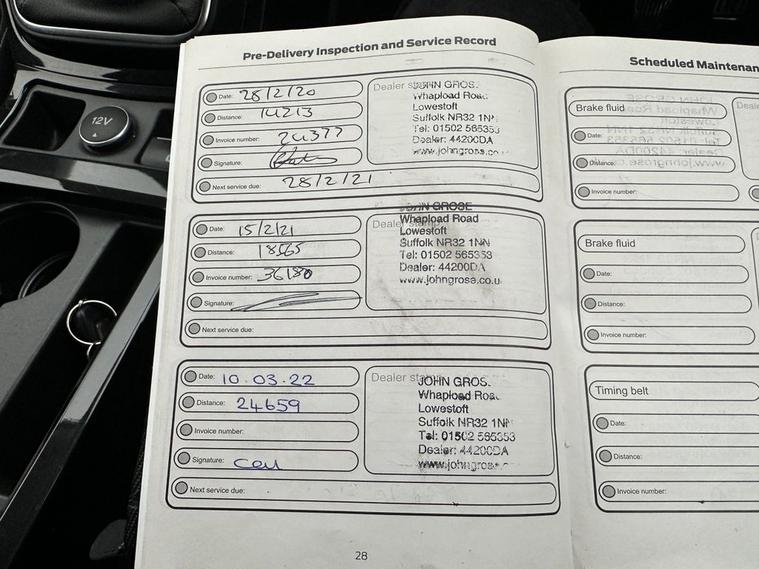 12V
Pre-Delivery Inspection and Service Record
Date: 28/2/20
Distance: 14213
Invoice number: 24377
Signature:
Next service due: 28/2/21
Dealer stamp
JOHN GROS.
Whapload Road
Lowestoft
Suffolk NR32 1N
Tel: 01502 565353
Dealer: 44200DA
www.johngrose.co
Date: 15/2/21
Distance: 18565
Invoice number: 36180
Signature:
Next service due:
Dealer stamp
JOHN GROSE
Whapload Road
Lowestoft
Suffolk NR32 1NN
Tel: 01502 565353
Dealer: 44200DA
www.johngrose.co.u
Date: 10.03.22
Distance: 24659
Invoice number:
Signature:
Next service due:
Dealer stamp
JOHN GROS.
Whapload Roa
Lowestoft
Suffolk NR32 1N
Tel: 01502 565353
Dealer: 44200DA
www.johngros
28
Scheduled Maintenan
Brake fluid
Date:
Distance:
Invoice number:
Deale
Brake fluid
Date:
Distance:
Invoice number:
Timing belt
Date:
Distance:
Invoice number: